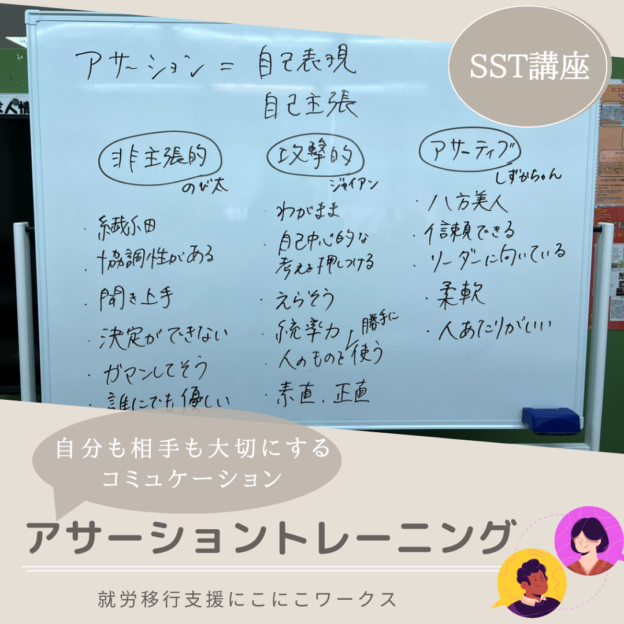 SST講座
アサーション = 自己表現
自己主張
非主張的
のび太
・繊細
・協調性がある
・聞き上手
・決定ができない
・ガマンしてそう
・誰にでも優しい
攻撃的
ジャイアン
・わがまま
・自己中心的な
考えを押しつける
・えらそう
・統率力
・人のものを勝手に使う
・素直、正直
アサーティブ
しずかちゃん
・八方美人
・信頼できる
・リーダーに向いている
・柔軟
・人あたりがいい
自分も相手も大切にする
コミュケーション
アサーショントレーニング
就労移行支援にこにこワークス